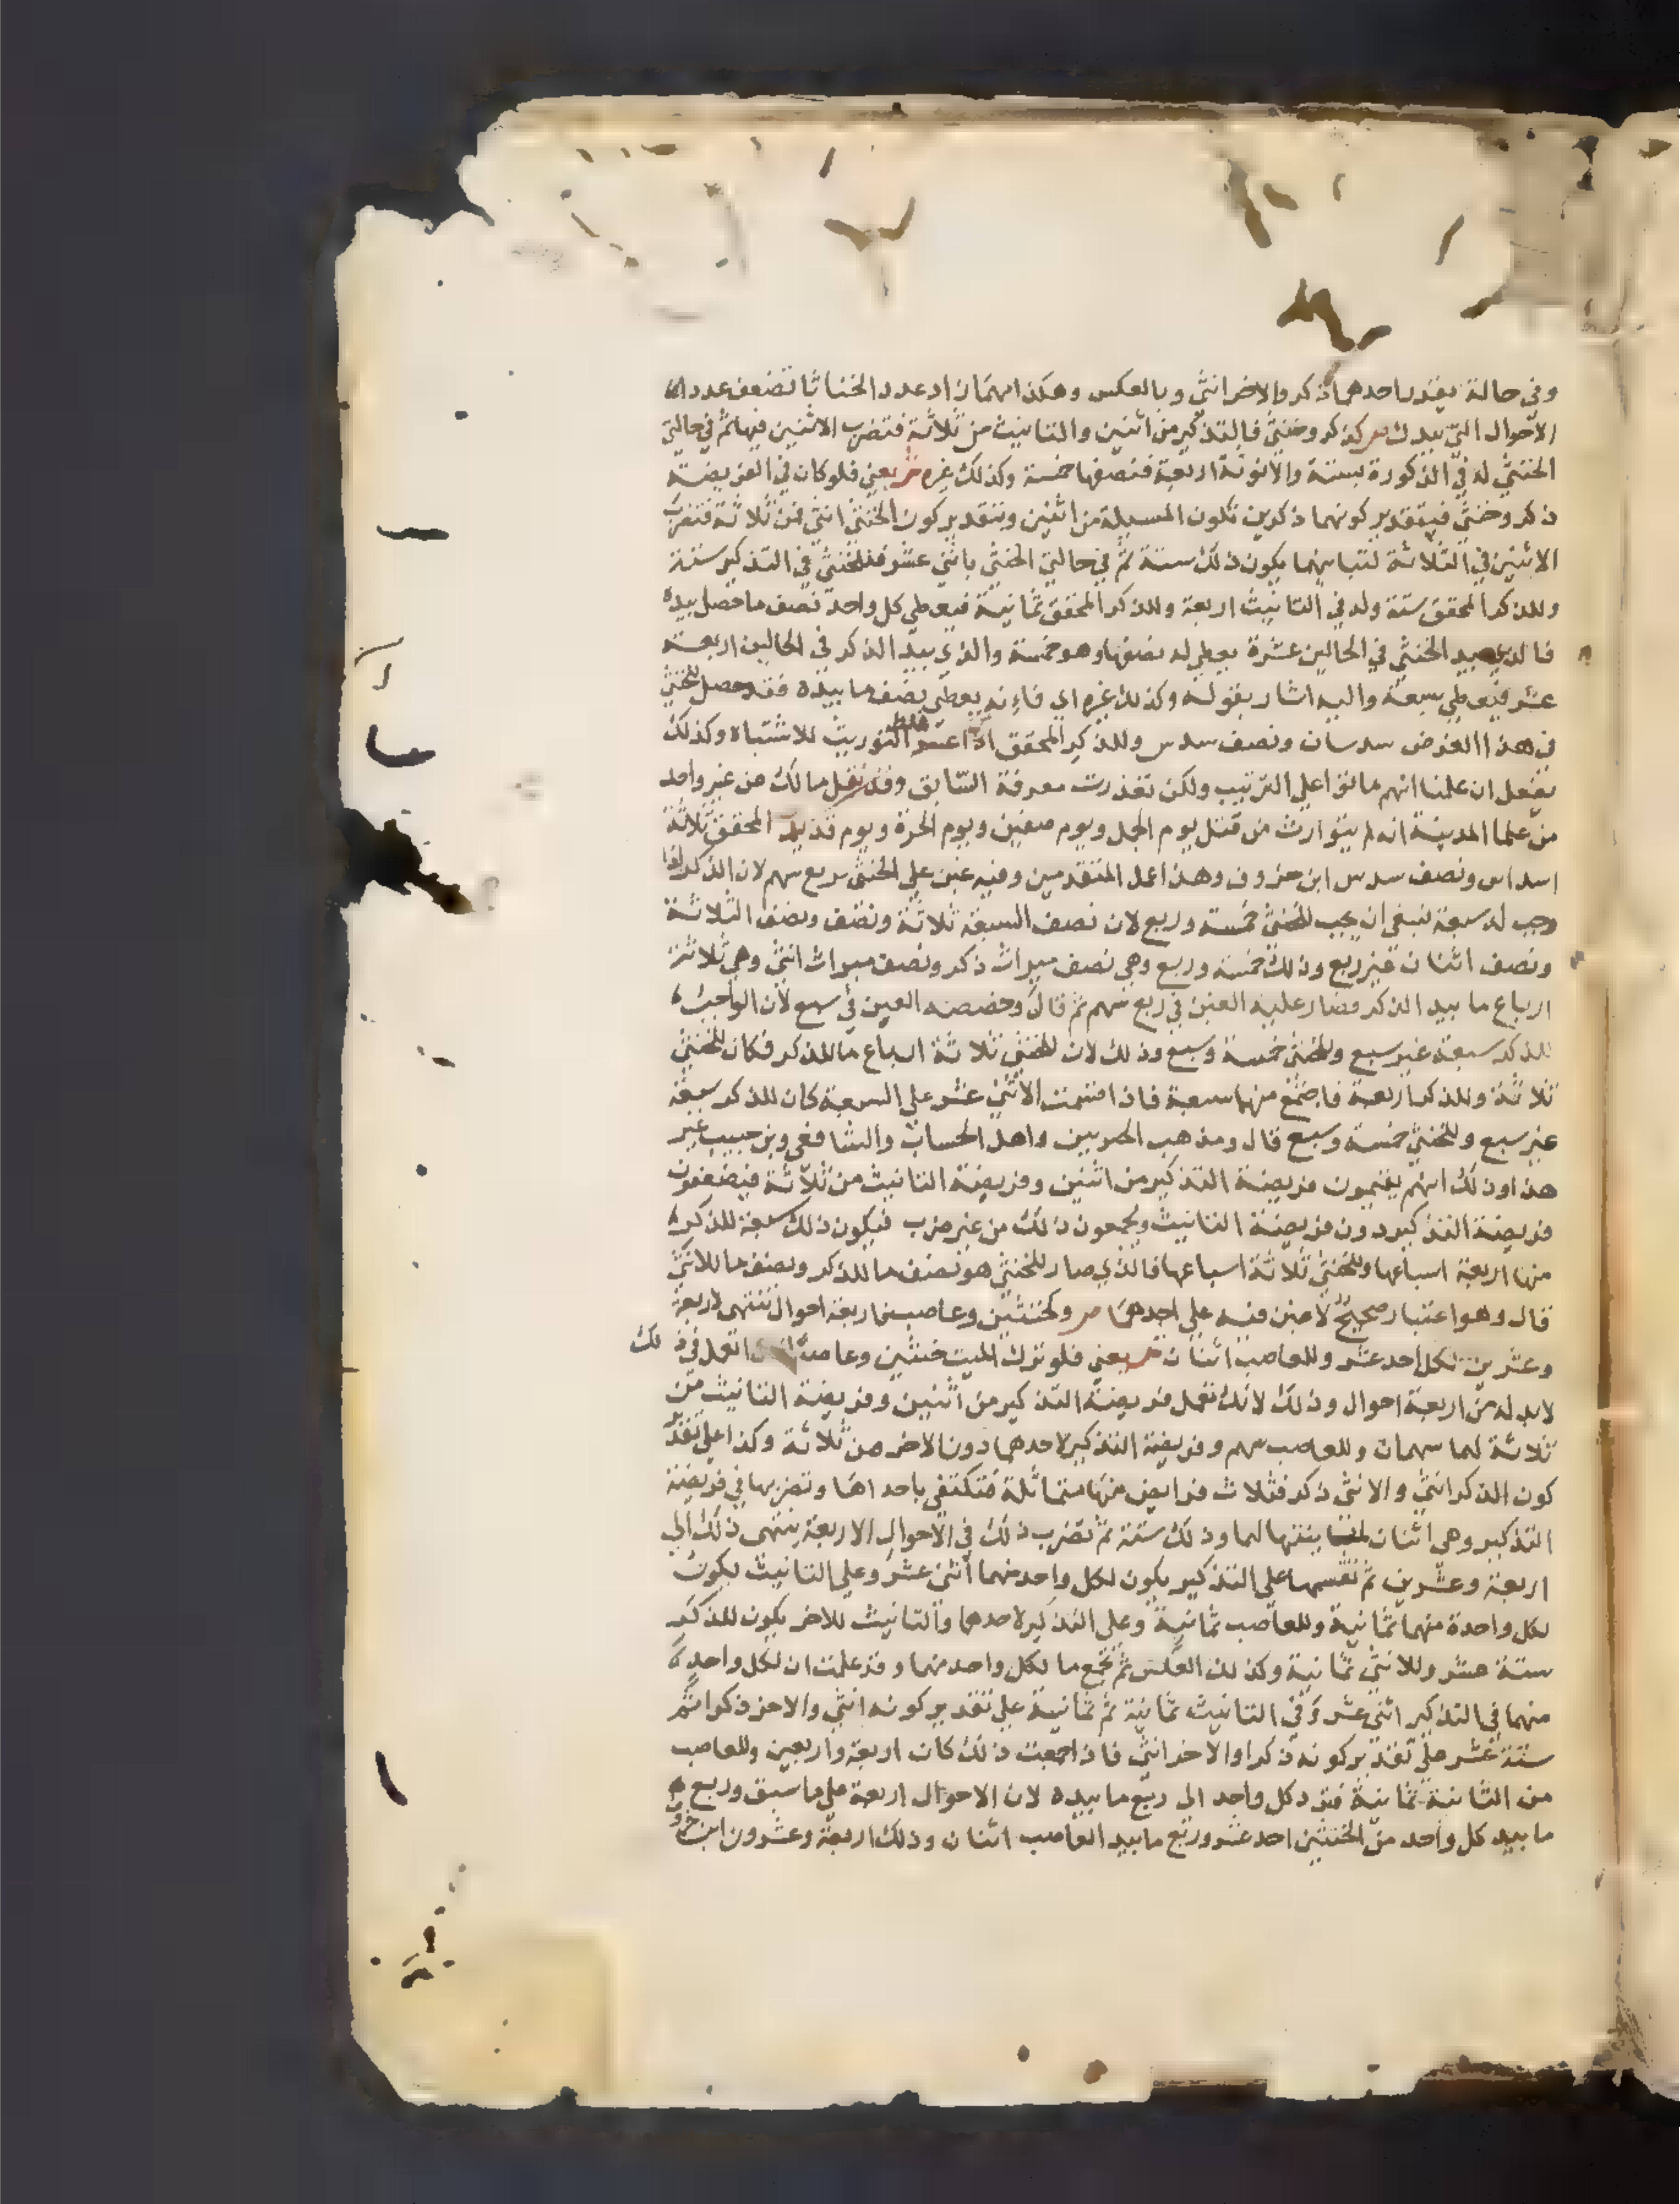 وفي حالة يقدر احدهما ذكر والاخر انثي وبالعكس وهكذا مهما زاد عدد الخناثا تضعف عدد
الاحوال التي بيدك ص كذكر وخنثي فالتذكير من اثنين والتانيث من ثلاثة فتضرب الاثنين فيها ثم في حالتي
الخنثي له في الذكورة ستة والانوثة اربعة فنصفها خمسة وكذلك غيره ش يعني فلو كان في الفريضة
ذكر وخنثي فبتقدير كونهما ذكرين تكون المسيلة من اثنين وبتقدير كون الخنثي انثي فمن ثلاثة فتضرب
الاثنين في الثلاثة لتباينهما يكون ذلك ستة ثم في حالتي الخنثي باثني عشر فللخنثي في التذكير ستة
وللذكر المحقق ستة وله في التانيث اربعة وللذكر المحقق ثمانية فيعطي كل واحد نصف ما حصل بيده
فالذي بيد الخنثي في الحالين عشرة يعطي له نصفها وهو خمسة والذي بيد الذكر في الحالين اربعة
عشر فيعطي سبعة واليه اشار بقوله وكذلك غيره اي فاءنه يعطي نصف ما بيده فقد حصل للخنثي
في هذا الفرض سدسان ونصف سدس وللذكر المحقق التوريث للاشتباه وكذلك
يفعل ان علمنا انهم ماتوا علي الترتيب ولكن تعذرت معرفة السابق وقد نقل مالك عن غير واحد
من علما المدينة انه لم يتوارث من قتل يوم الجمل ويوم صفين ويوم الحرة ويوم قديد المحقق ثلاثة
اسداس ونصف سدس ابن خروف وهذا عمل المتقدمين وفيه غبن علي الخنثي بربع سهم لان الذكر اذا
وجب له سبعة ينبغي ان يجب للخنثي خمسة وربع لان نصف السبعة ثلاثة ونصف ونصف الثلاثة
ونصف اثنان غير ربع وذلك خمسة وربع وهي نصف ميراث ذكر ونصف ميراث انثي وهي ثلاثة
ارباع ما بيد الذكر فصار عليه الغبن في ربع سهم ثم قال وحصته الغبن في سبع لان الواجب
للذكر سبعة غير سبع وللخنثي خمسة وسبع وذلك لان للخنثي ثلاثة ارباع ما للذكر فكان للخنثي
ثلاثة وللذكر اربعة فاجتمع منها سبعة فاذا قسمت الاثني عشر علي السبعة كان للذكر سبعة
غير سبع وللخنثي خمسة وسبع قال ومذهب المصريين واهل الحساب والشافعي وبن حبيب غير
هذا وذلك انهم يقيمون فريضة التذكير من اثنين وفريضة التانيث من ثلاثة فيضعفون
فريضة التذكير دون فريضة التانيث ويجمعون ذلك من غير ضرب فيكون ذلك سبعة للذكر
منها اربعة اسباعها وللخنثي ثلاثة اسباعها فالذي صار للخنثي هو نصف ما للذكر ونصف ما للانثي
قال وهو اعتبار صحيح لا غبن فيه علي احدهما ص وكخنثيين وعاصب فاربعة احوال تنتهي لاربعة
وعشرين لكل احد عشر وللعاصب اثنان ش يعني فلو ترك الميت خنثيين وعاصبا العمل في ذلك
لابد له من اربعة احوال وذلك لانك تعمل فريضة التذكير من اثنين وفريضة التانيث من
ثلاثة لهما سهمان وللعاصب سهم وفريضة التذكير لاحدهما دون الاخر من ثلاثة وكذا علي تقدير
كون الذكر انثي والانثي ذكر فثلاث فرايض منها متماثلة فتكتفي باحداها وتضربها في فريضة
التذكير وهي اثنان بينهما وذلك ستة ثم تضرب ذلك في الاحوال الاربعة ينتهي ذلك الي
اربعة وعشرين ثم تقسمها علي التذكير يكون لكل واحد منهما اثني عشر وعلي التانيث يكون
لكل واحدة منهما ثمانية وللعاصب ثمانية وعلي التذكير لاحدهما والتانيث للاخر يكون للذكر
ستة عشر وللانثي ثمانية وكذلك العكس ثم تجمع ما لكل واحد منهما وقد علمت ان لكل واحد
منهما في التذكير اثني عشر وفي التانيث ثمانية ثم ثمانية علي تقدير كونه انثي والاخر ذكرا ثم
ستة عشر علي تقدير كونه ذكرا والاخر انثي فاذا جمعت ذلك كان اربعة واربعين وللعاصب
من الثانية ثمانية فترد كل واحد الي ربع ما بيده لان الاحوال اربعة علي ما سبق وربع
ما بيد كل واحد من الخنثيين احد عشر وربع ما بيد العاصب اثنان وذلك اربعة وعشرون ابن خروف